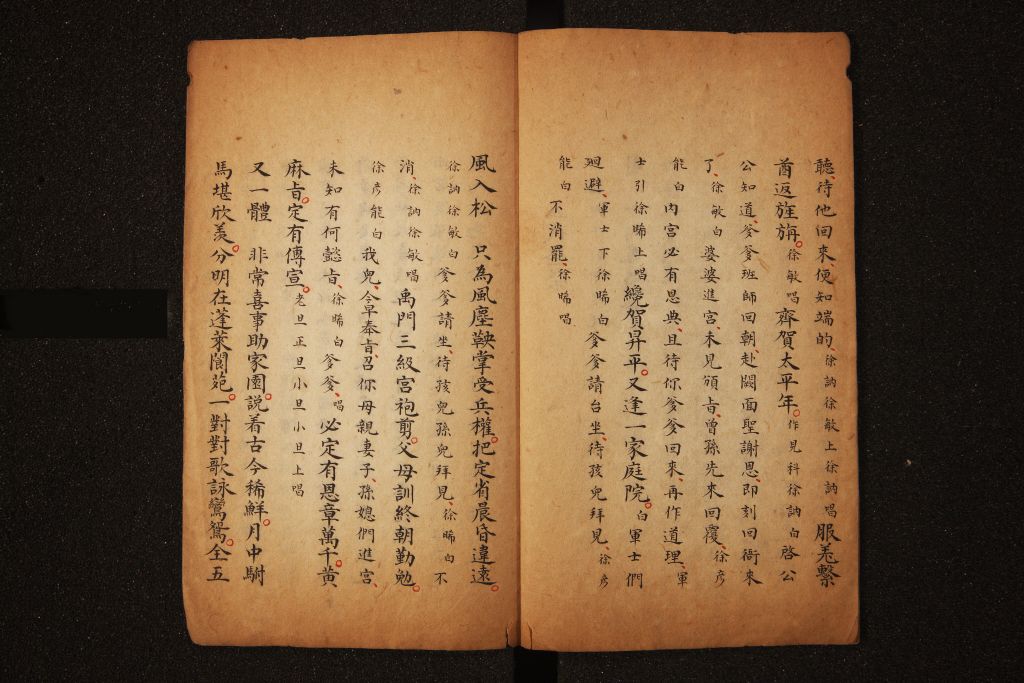 聽、待他回來、便知端的、徐訥徐敏上徐訥唱服羌繫
酋返旌旃。徐敏唱齊賀太平年。作見科徐訥白啓公
公知道、爹爹班師回朝、赴闕面聖謝恩、即刻回衙來
了、徐敏白婆婆進宮、未見頒旨、曾孫先來回覆、徐彦
能白內宮必有恩典、且待你爹爹回來、再作道理、軍
士引徐晞上唱纔賀昇平。又逢一家庭院。白軍士們
廻避、軍士下徐晞白爹爹請台坐、待孩兒拜見、徐彦
能白不消罷、徐晞唱
風入松 只為風塵鞅掌受兵權。把定省晨昏違遠。
徐訥徐敏白爹爹請坐、待孩兒孫兒拜見、徐晞白不
消、徐訥徐敏唱禹門三級宮袍剪。父母訓終朝勤勉。
徐彦能白我兒、今早奉旨、召你母親妻子、孫媳們進宮、
未知有何懿旨、徐晞白爹爹、唱必定有恩章萬千。黃
麻旨。定有傳宣。老旦正旦小旦小旦上唱
又一體 非常喜事助家園。說着古今稀鮮。月中駙
馬堪欣羨。分明在蓬萊閬苑。一對對歌詠鸞鴛。全五